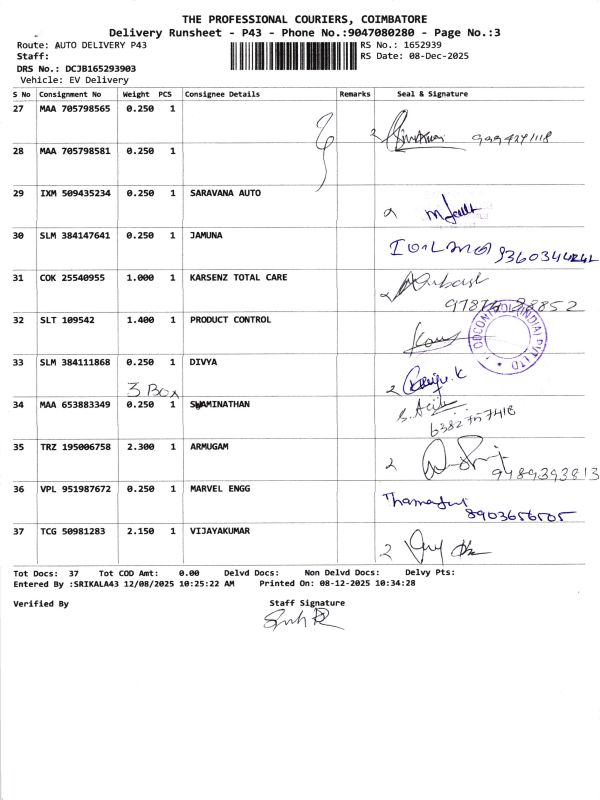 THE PROFESSIONAL COURIERS, COIMBATORE
Delivery Runsheet - P43 - Phone No.:9047080280 - Page No.:3
Route: AUTO DELIVERY P43 RS No.: 1652939
Staff: RS Date: 08-Dec-2025
DRS No.: DCJB165293903
Vehicle: EV Delivery
S No Consignment No Weight PCS Consignee Details Remarks Seal & Signature
27 MAA 705798565 0.250 1
28 MAA 705798581 0.250 1
29 IXM 509435234 0.250 1 SARAVANA AUTO
30 SLM 384147641 0.250 1 JAMUNA
31 COK 25540955 1.000 1 KARSENZ TOTAL CARE
32 SLT 109542 1.400 1 PRODUCT CONTROL
33 SLM 384111868 0.250 1 DIVYA
3 Box
34 MAA 653883349 0.250 1 SWAMINATHAN
6382757418
35 TRZ 195006758 2.300 1 ARMUGAM
9489393813
36 VPL 951987672 0.250 1 MARVEL ENGG
8903656505
37 TCG 50981283 2.150 1 VIJAYAKUMAR
Tot Docs: 37 Tot COD Amt: 0.00 Delvd Docs: Non Delvd Docs: Delvy Pts:
Entered By :SRIKALA43 12/08/2025 10:25:22 AM Printed On: 08-12-2025 10:34:28
Verified By Staff Signature